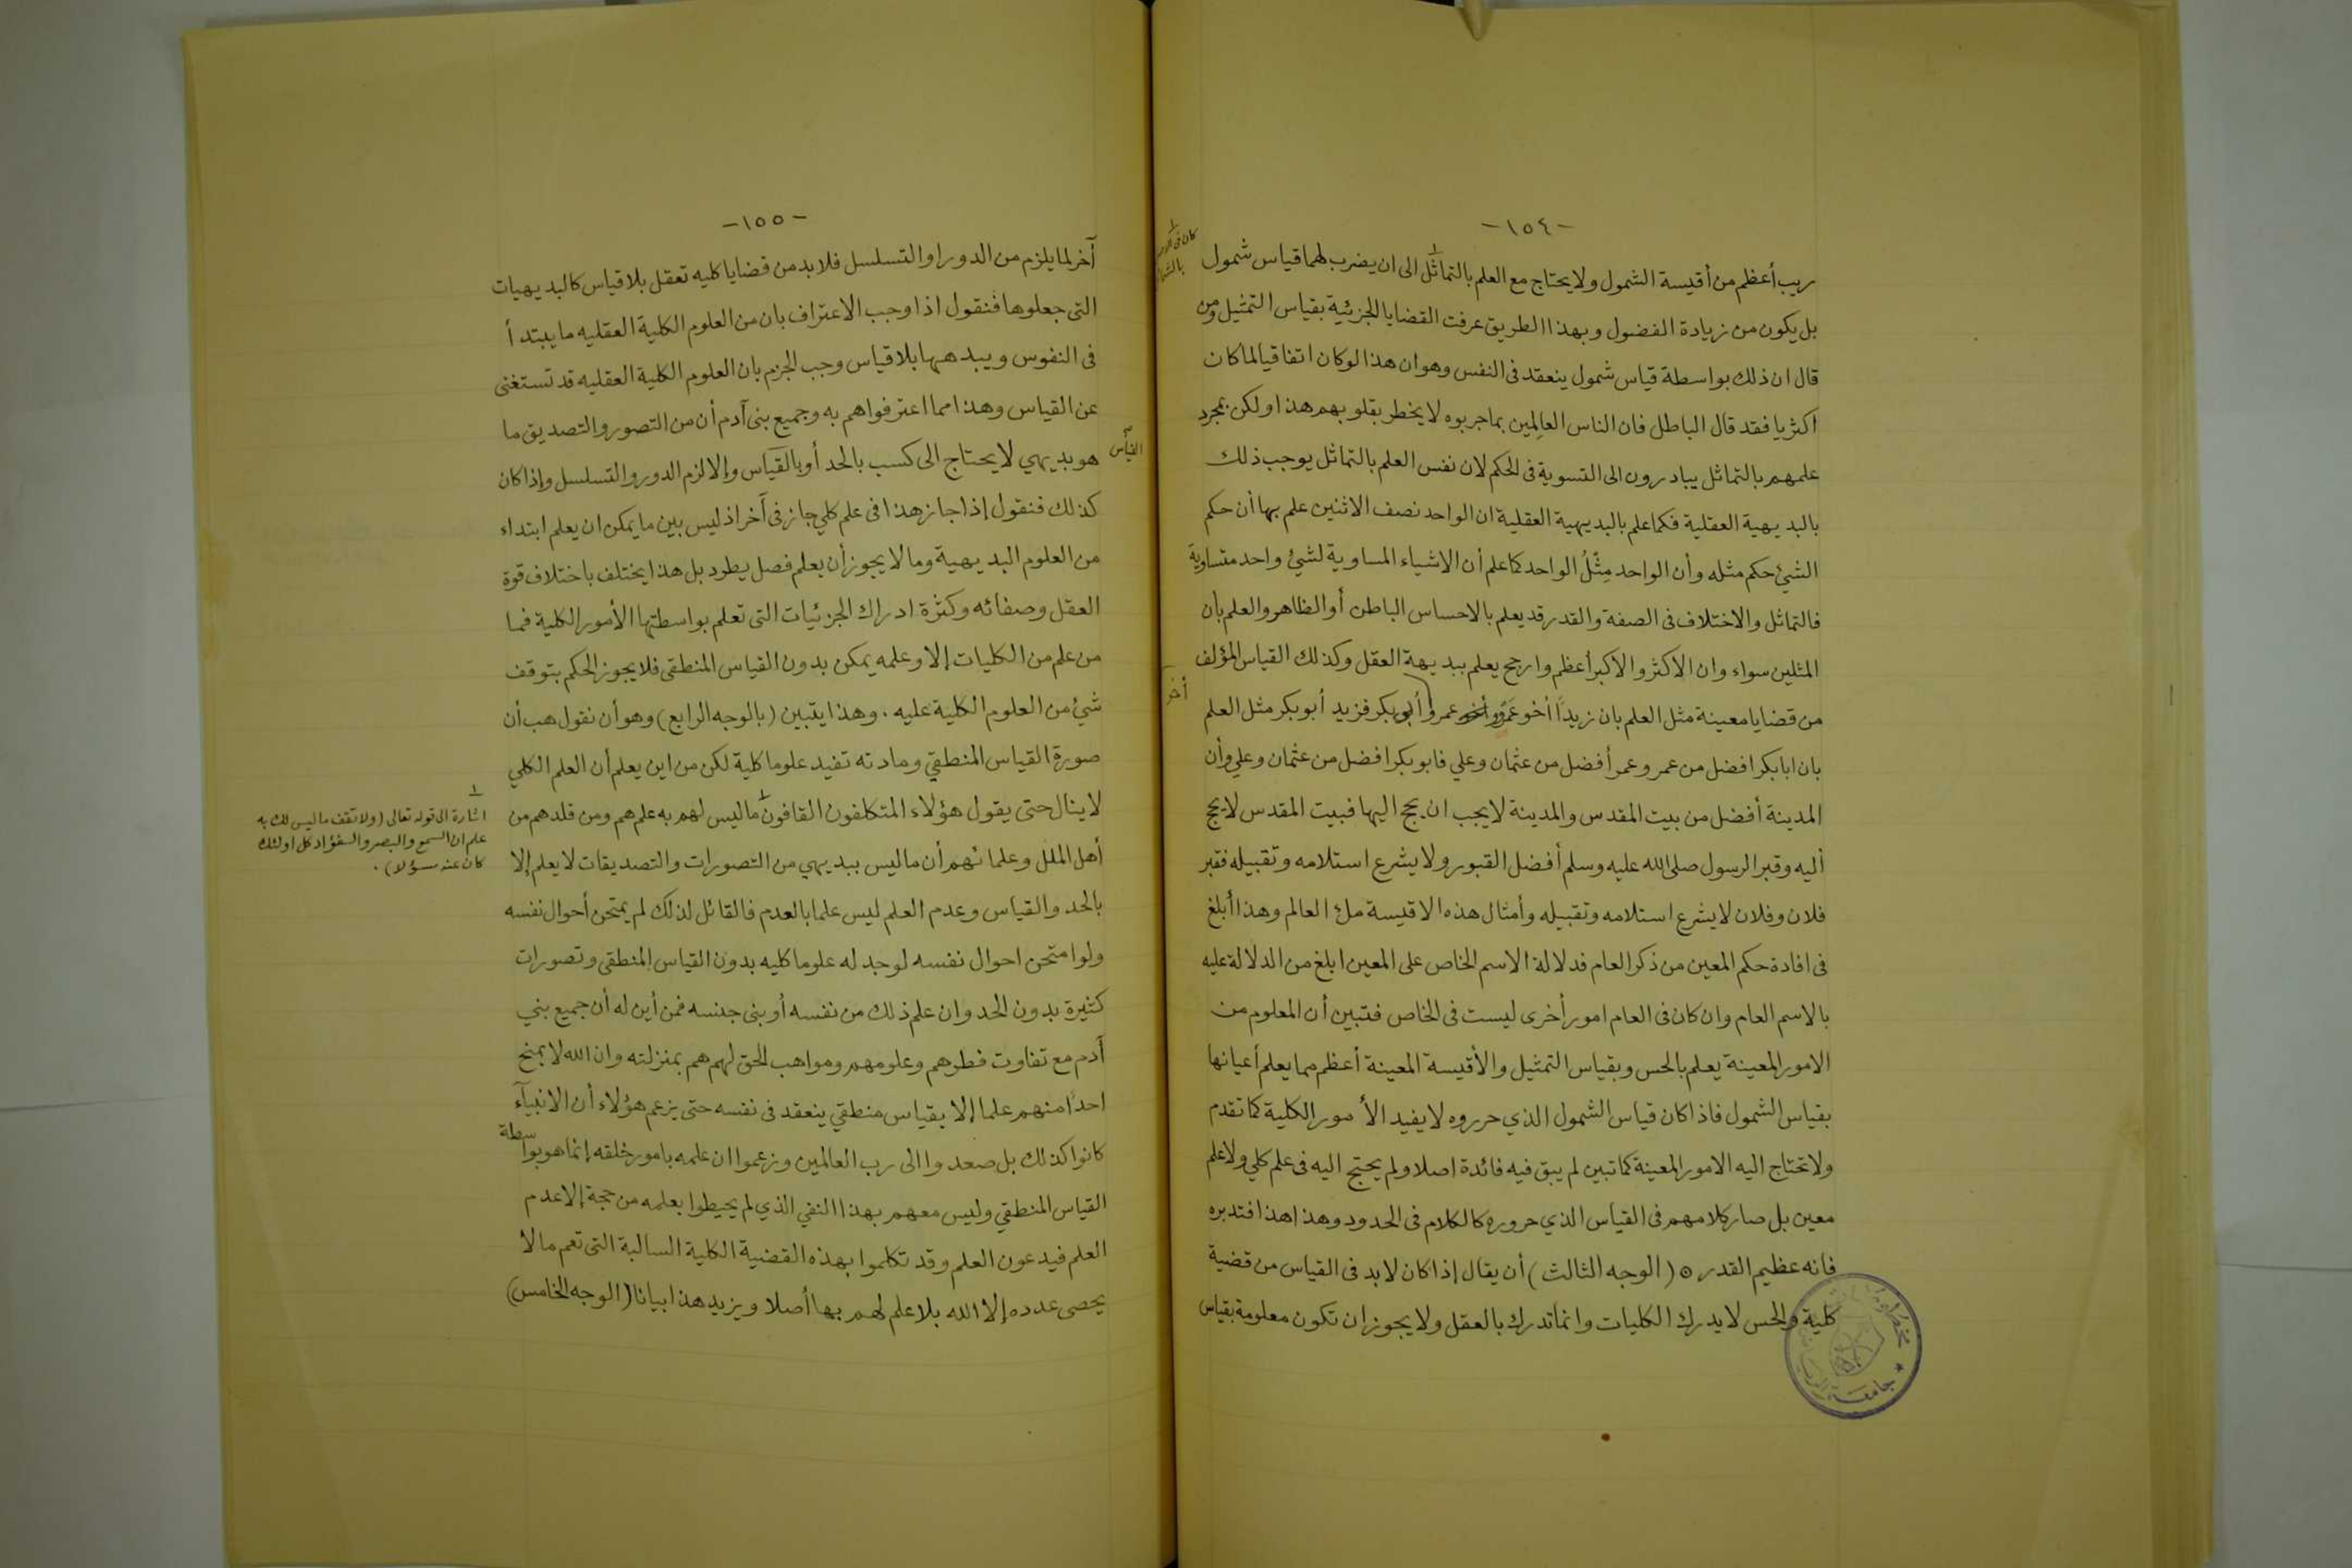 -١٥٤-
ريب أعظم من أقيسة الشمول ولا يحتاج مع العلم بالتماثل الى ان يضرب لهما قياس شمول
بل يكون من زيادة الفضول وبهذا الطريق عرفت القضايا الجزئية بقياس التمثيل ومن
قال ان ذلك بواسطة قياس شمول ينعقد فى النفس وهوان هذا لوكان اتفاقيا لما كان
اكثريا فقد قال الباطل فان الناس العالِمين بما جربوه لا يخطر بقلوبهم هذا ولكن بمجرد
علمهم بالتماثل يبادرون الى التسوية فى الحكم لان نفس العلم بالتماثل يوجب ذلك
بالبديهية العقلية فكما علم بالبديهية العقلية ان الواحد نصف الاثنين علم بها أن حكم
الشئ حكم مثله وأن الواحد مِثْلُ الواحد كما علم أن الاشياء المساوية لشئ واحد متساوية
فالتماثل والاختلاف فى الصفة والقدر قد يعلم بالاحساس الباطن أو الظاهر والعلم بأن
المثلين سواء وان الاكثر والاكبر أعظم وارجح يعلم ببديهة العقل وكذلك القياس المؤلف
من قضايا معينة مثل العلم بان زيدًا أخو عَمْرو عمرو أبوبكر فزيد أبوبكر مثل العلم
أخو
بان ابابكر افضل من عمر وعمر أفضل من عثمان وعلي فابوبكر افضل من عثمان وعلي وأن
المدينة أفضل من بيت المقدس والمدينة لا يجب ان يحج اليها فبيت المقدس لا يحج
أليه وقبر الرسول صلى الله عليه وسلم أفضل القبور ولا يشرع استلامه وتقبيله فقبر
فلان وفلان لا يشرع استلامه وتقبيله وأمثال هذه الاقيسة ملء العالم وهذا أبلغ
فى افادة حكم المعين من ذكر العام فدلالة الاسم الخاص على المعين ابلغ من الدلالة عليه
بالاسم العام وان كان فى العام امور أخرى ليست فى الخاص فتبين أن المعلوم من
الامور المعينة يعلم بالحس وبقياس التمثيل والأقيسة المعينة أعظم مما يعلم أعيانها
بقياس الشمول فاذا كان قياس الشمول الذي حرروه لا يفيد الأمور الكلية كما تقدم
ولا تحتاج اليه الامور المعينة كما تبين لم يبق فيه فائدة اصلا ولم يحتج اليه فى علم كلي ولا علم
معين بل صار كلامهم فى القياس الذي حرروه كالكلام فى الحدود وهذا هذا فتدبره
فانه عظيم القدر ⊙ (الوجه الثالث) أن يقال إذا كان لابد فى القياس من قضية
كلية والحس لا يدرك الكليات وانما تدرك بالعقل ولا يجوز ان تكون معلومة بقياس
-١٥٥-
آخر لما يلزم من الدور او التسلسل فلابد من قضايا كليه تعقل بلا قياس كالبديهيات
التى جعلوها فنقول اذا وجب الاعتراف بان من العلوم الكلية العقليه ما يبتدأ
فى النفوس ويبدهها بلا قياس وجب الجزم بان العلوم الكلية العقليه قد تستغنى
عن القياس وهذا مما اعترفوا هم به وجميع بنى آدم أن من التصور والتصديق ما
هو بديهي لا يحتاج الى كسب بالحد أو بالقياس وإلا لزم الدور والتسلسل وإذا كان
القياس
كذلك فنقول إذا جاز هذا فى علم كلي جاز فى آخر اذ ليس بين ما يمكن ان يعلم ابتداء
من العلوم البديهية وما لا يجوز أن يعلم فصل يطرد بل هذا يختلف باختلاف قوة
العقل وصفائه وكثرة ادراك الجزئيات التى تعلم بواسطتها الأمور الكلية فما
من علم من الكليات إلا وعلمه يمكن بدون القياس المنطقى فلا يجوز الحكم بتوقف
شئ من العلوم الكلية عليه . وهذا يتبين (بالوجه الرابع) وهو أن نقول هب أن
صورة القياس المنطقي ومادته تفيد علوما كلية لكن من اين يعلم أن العلم الكلي
لا ينال حتى يقول هؤلاء المتكلفون القافون ما ليس لهم به علم هم ومن قلدهم من
أهل الملل وعلمائهم أن ما ليس ببديهي من التصورات والتصديقات لا يعلم إلا
بالحد والقياس وعدم العلم ليس علما بالعدم فالقائل لذلك لم يمتحن أحوال نفسه
ولو امتحن احوال نفسه لوجد له علوما كليه بدون القياس المنطقى وتصورات
كثيرة بدون الحد وان علم ذلك من نفسه أو بنى جنسه فمن أين له أن جميع بني
آدم مع تفاوت فطرهم وعلومهم ومواهب الحق لهم هم بمنزلته وان الله لا يمنح
احدًا منهم علما إلا بقياس منطقي ينعقد فى نفسه حتى يزعم هؤلاء أن الانبيآء
كانوا كذلك بل صعدوا الى رب العالمين وزعموا ان علمه بامور خلقه إنما هو بواسطة
القياس المنطقي وليس معهم بهذا النفي الذي لم يحيطوا بعلمه من حجة إلا عدم
العلم فيدعون العلم وقد تكلموا بهذه القضية الكلية السالبة التى تعم ما لا
يحصى عدده إلا الله بلا علم لهم بها أصلا ويزيد هذا بيانا (الوجه الخامس)
١
اشارة الى قوله تعالى (ولا تقف ما ليس لك به
علم ان السمع والبصر والفؤاد كل اولئك
كان عنه مسؤلا) .